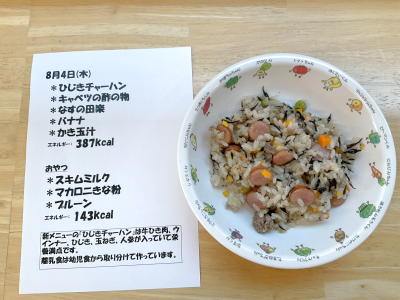 8月4日(木)
＊ひじきチャーハン
＊キャベツの酢の物
＊なすの田楽
＊バナナ
＊かき玉汁
エネルギー: 387kcal
おやつ
＊スキムミルク
＊マカロニきな粉
＊プルーン
エネルギー: 143kcal
新メニューの「ひじきチャーハン」は牛ひき肉、ウ
インナー、ひじき、玉ねぎ、人参が入っていて栄
養満点です。
離乳食は幼児食から取り分けて作っています。